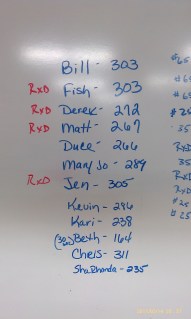 Bill - 303
RxD Fish - 303
RxD Derek - 272
RxD Matt - 267
Duee - 266
Mary Jo - 289
RxD Jen - 305
Kevin - 296
Kari - 238
Beth - 164
Chris - 311
ShaRhonda - 235
#65
#6
#6
35
RxD
35
RxD
RxD
#25
#25